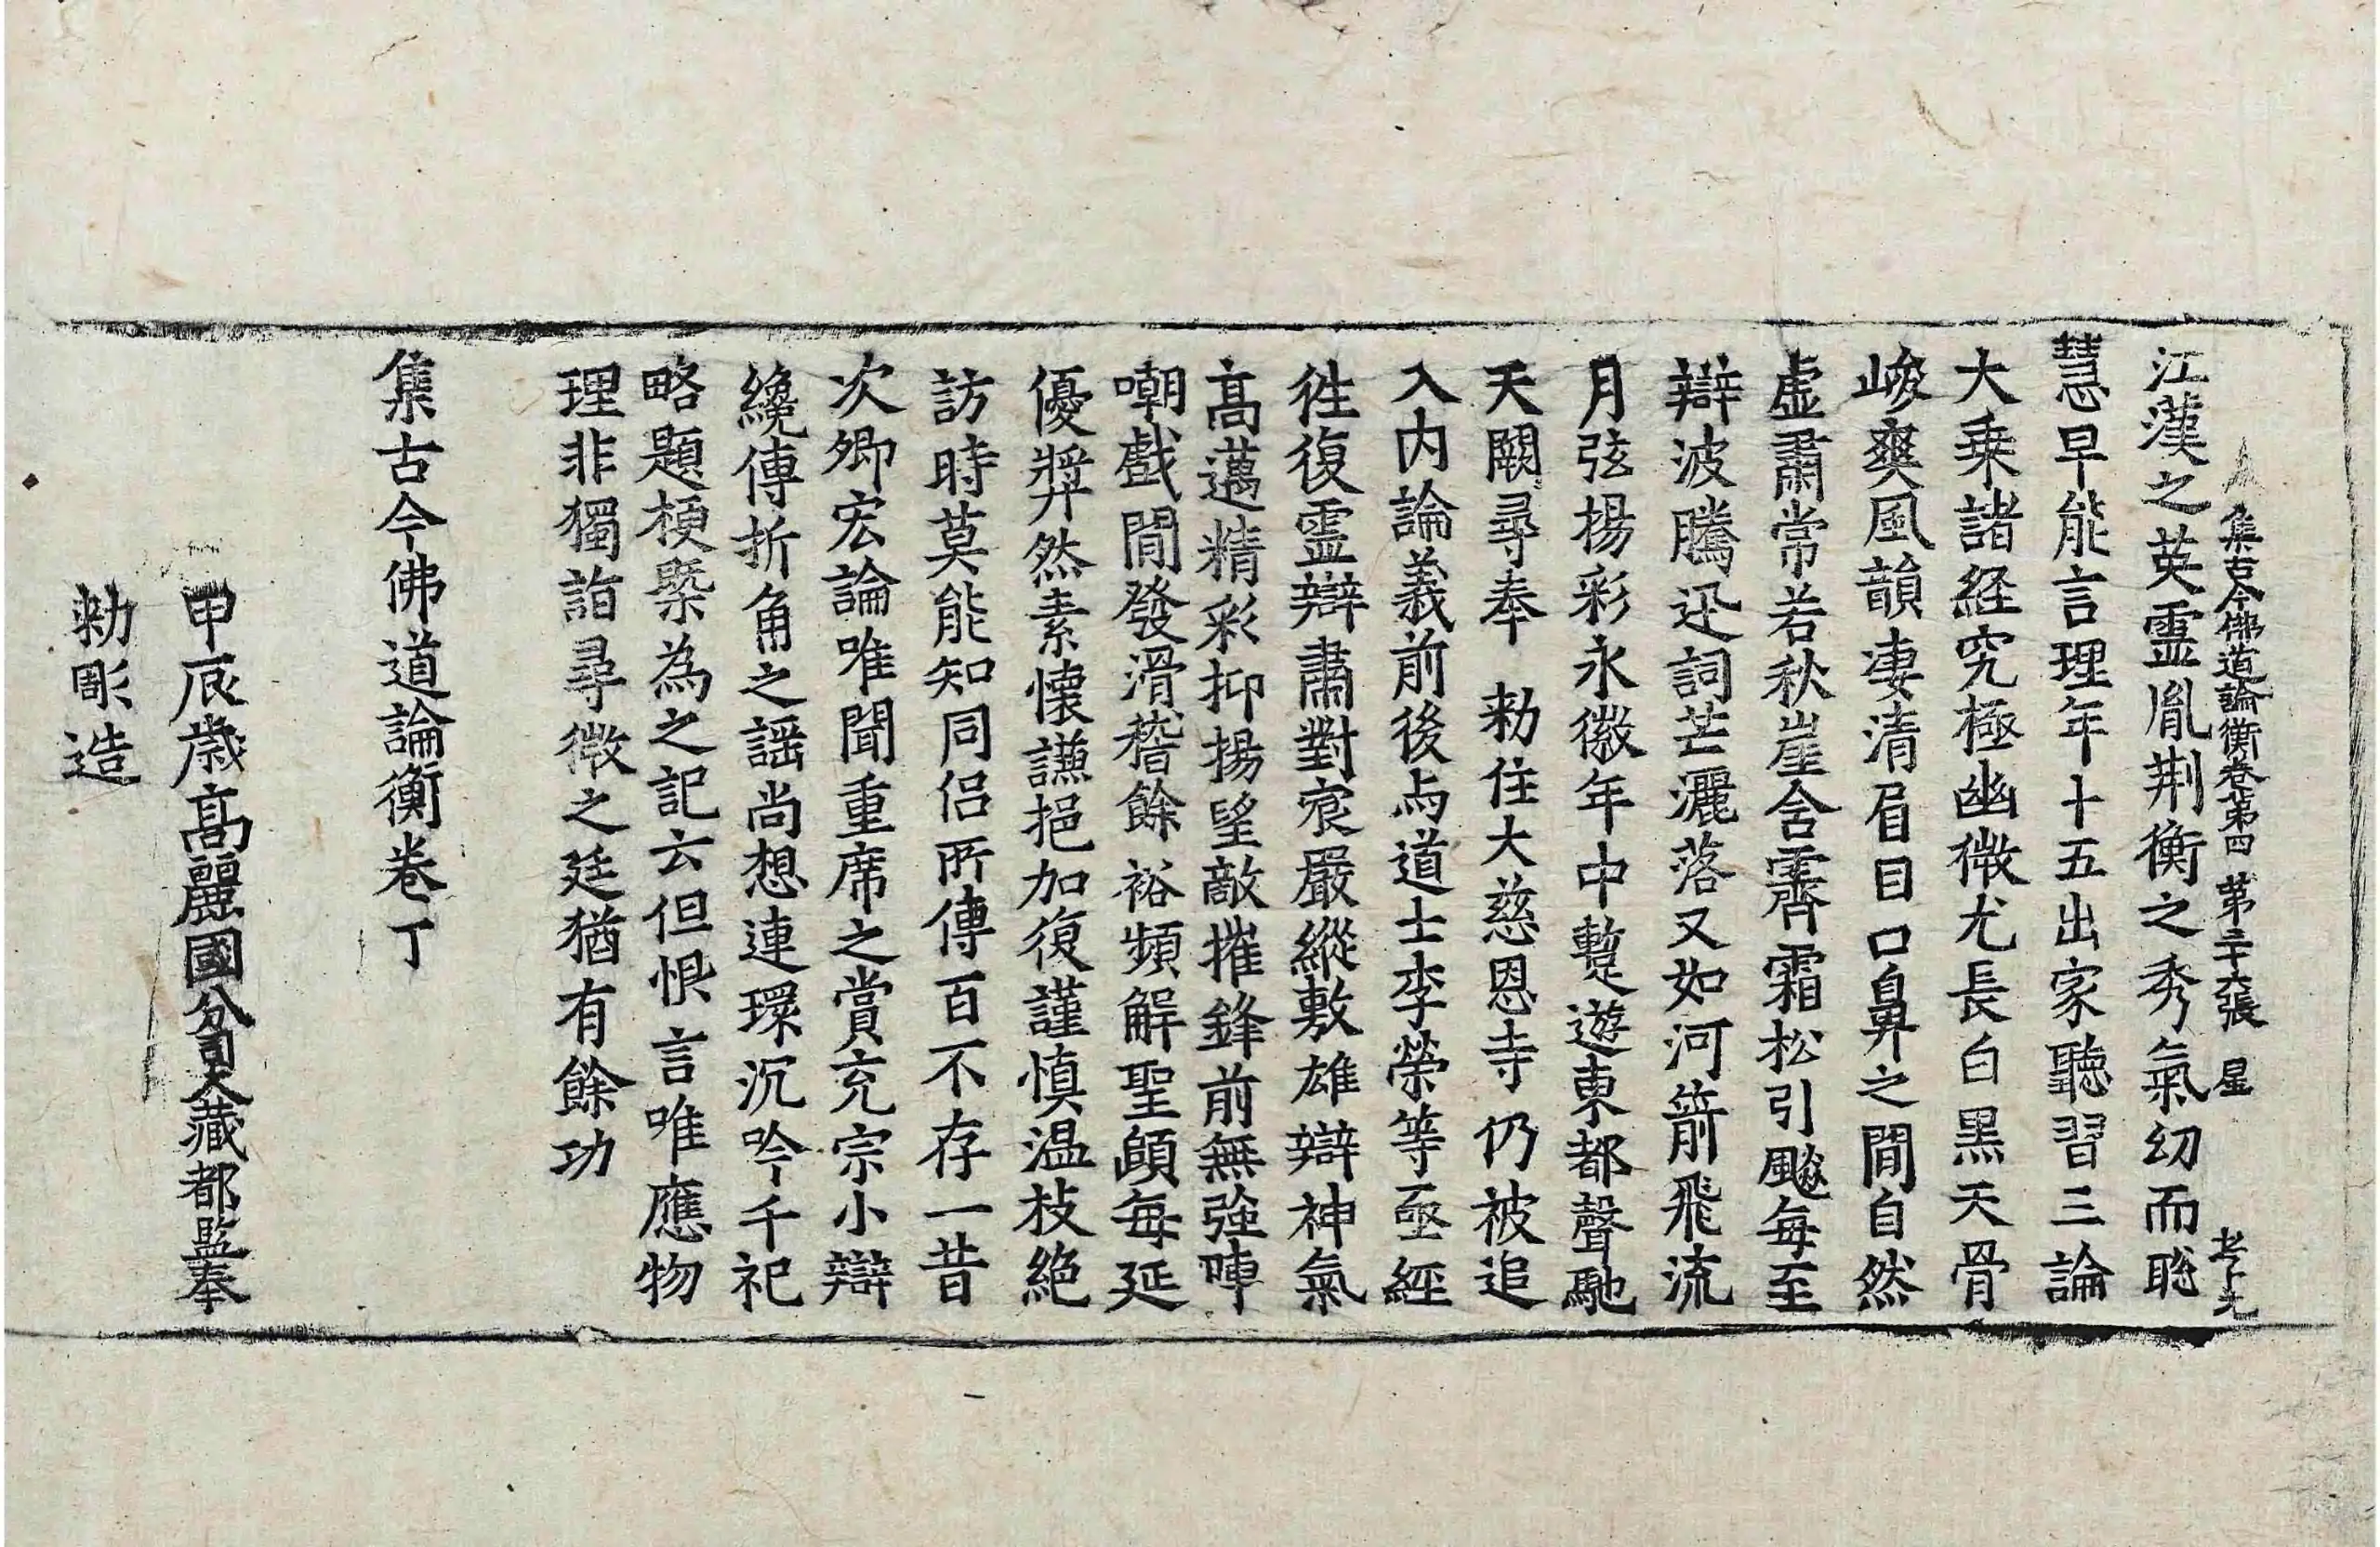 集古今佛道論衡卷第四 第二十六張 星
江漢之英霊胤荆衡之秀氣幼而聡
慧早能言理年十五出家聽習三論
大乗諸経究極幽微尤長白黒天骨
峻爽風韻凄清眉目口鼻之間自然
虚肅常若秋崖含霽霜松引飈毎至
辯波騰迅詞芒灑落又如河箭飛流
月弦揚彩永徽年中蹔遊東都聲馳
天闕尋奉 勑住大慈恩寺仍被追
入内論義前後与道士李榮等亟經
徃復霊辯肅對宸嚴縱敷雄辯神氣
高邁精彩抑揚望敵摧鋒前無強陣
嘲戲間發滑稽餘裕頻解聖頤毎延
優奬然素懐謙挹加復謹慎温枝絶
訪時莫能知同侣所傳百不存一昔
次卿宏論唯聞重席之賞充宗小辯
纔傳折角之謡尚想連環沉吟千祀
略題梗槩為之記云但恨言唯應物
理非獨詣尋微之廷猶有餘功
集古今佛道論衡卷丁
甲辰歳髙麗國分司大藏都監奉
勑彫造